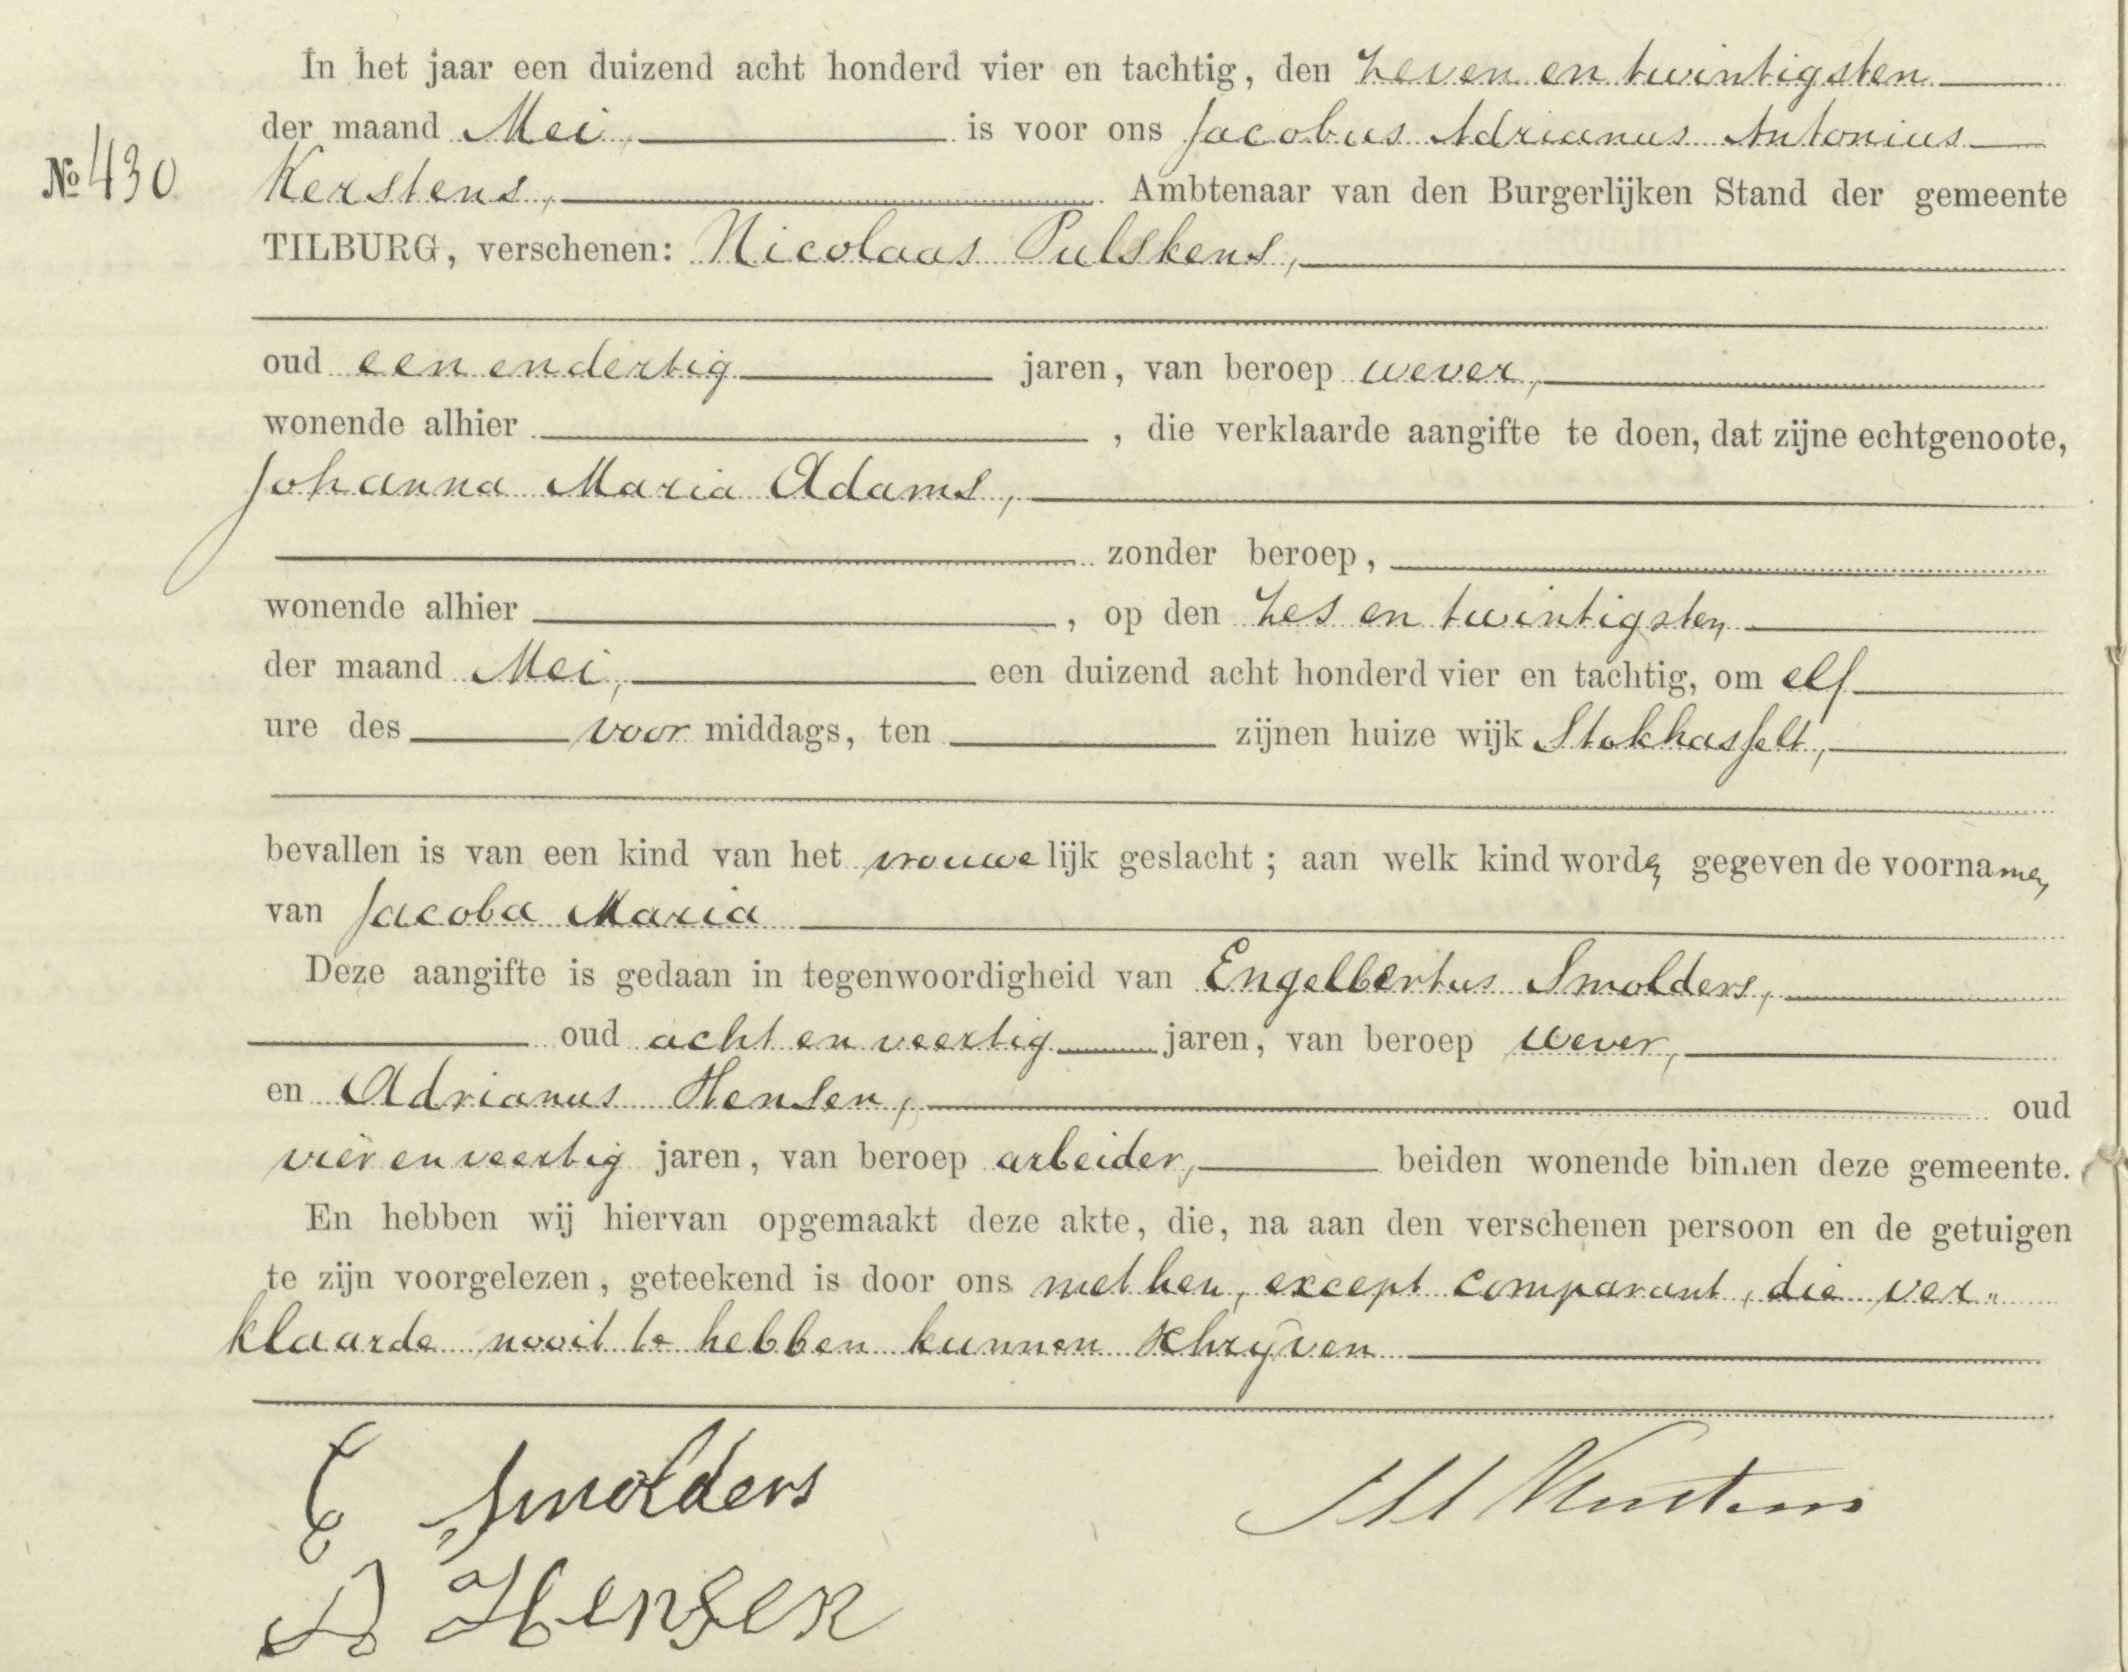 In het jaar een duizend acht honderd vier en tachtig, den zeven en twintigsten
der maand Mei, is voor ons Jacobus Adrianus Antonius
№ 430 Kerstens, Ambtenaar van den Burgerlijken Stand der gemeente
TILBURG, verschenen: Nicolaas Pulskens,
oud een en dertig jaren, van beroep wever,
wonende alhier , die verklaarde aangifte te doen, dat zijne echtgenoote,
Johanna Maria Adams,
zonder beroep,
wonende alhier , op den zes en twintigsten
der maand Mei, een duizend acht honderd vier en tachtig, om elf
ure des voor middags, ten zijnen huize wijk Stokhasselt,
bevallen is van een kind van het vrouwelijk geslacht; aan welk kind worden gegeven de voornamen
van Jacoba Maria
Deze aangifte is gedaan in tegenwoordigheid van Engelbertus Smolders,
oud acht en veertig jaren, van beroep wever,
en Adrianus Hensen, oud
vier en veertig jaren, van beroep arbeider, beiden wonende binnen deze gemeente.
En hebben wij hiervan opgemaakt deze akte, die, na aan den verschenen persoon en de getuigen
te zijn voorgelezen, geteekend is door ons met hen, except comparant, die ver„
klaarde nooit te hebben kunnen schrijven
E Smolders
Kerstens
A Hensen